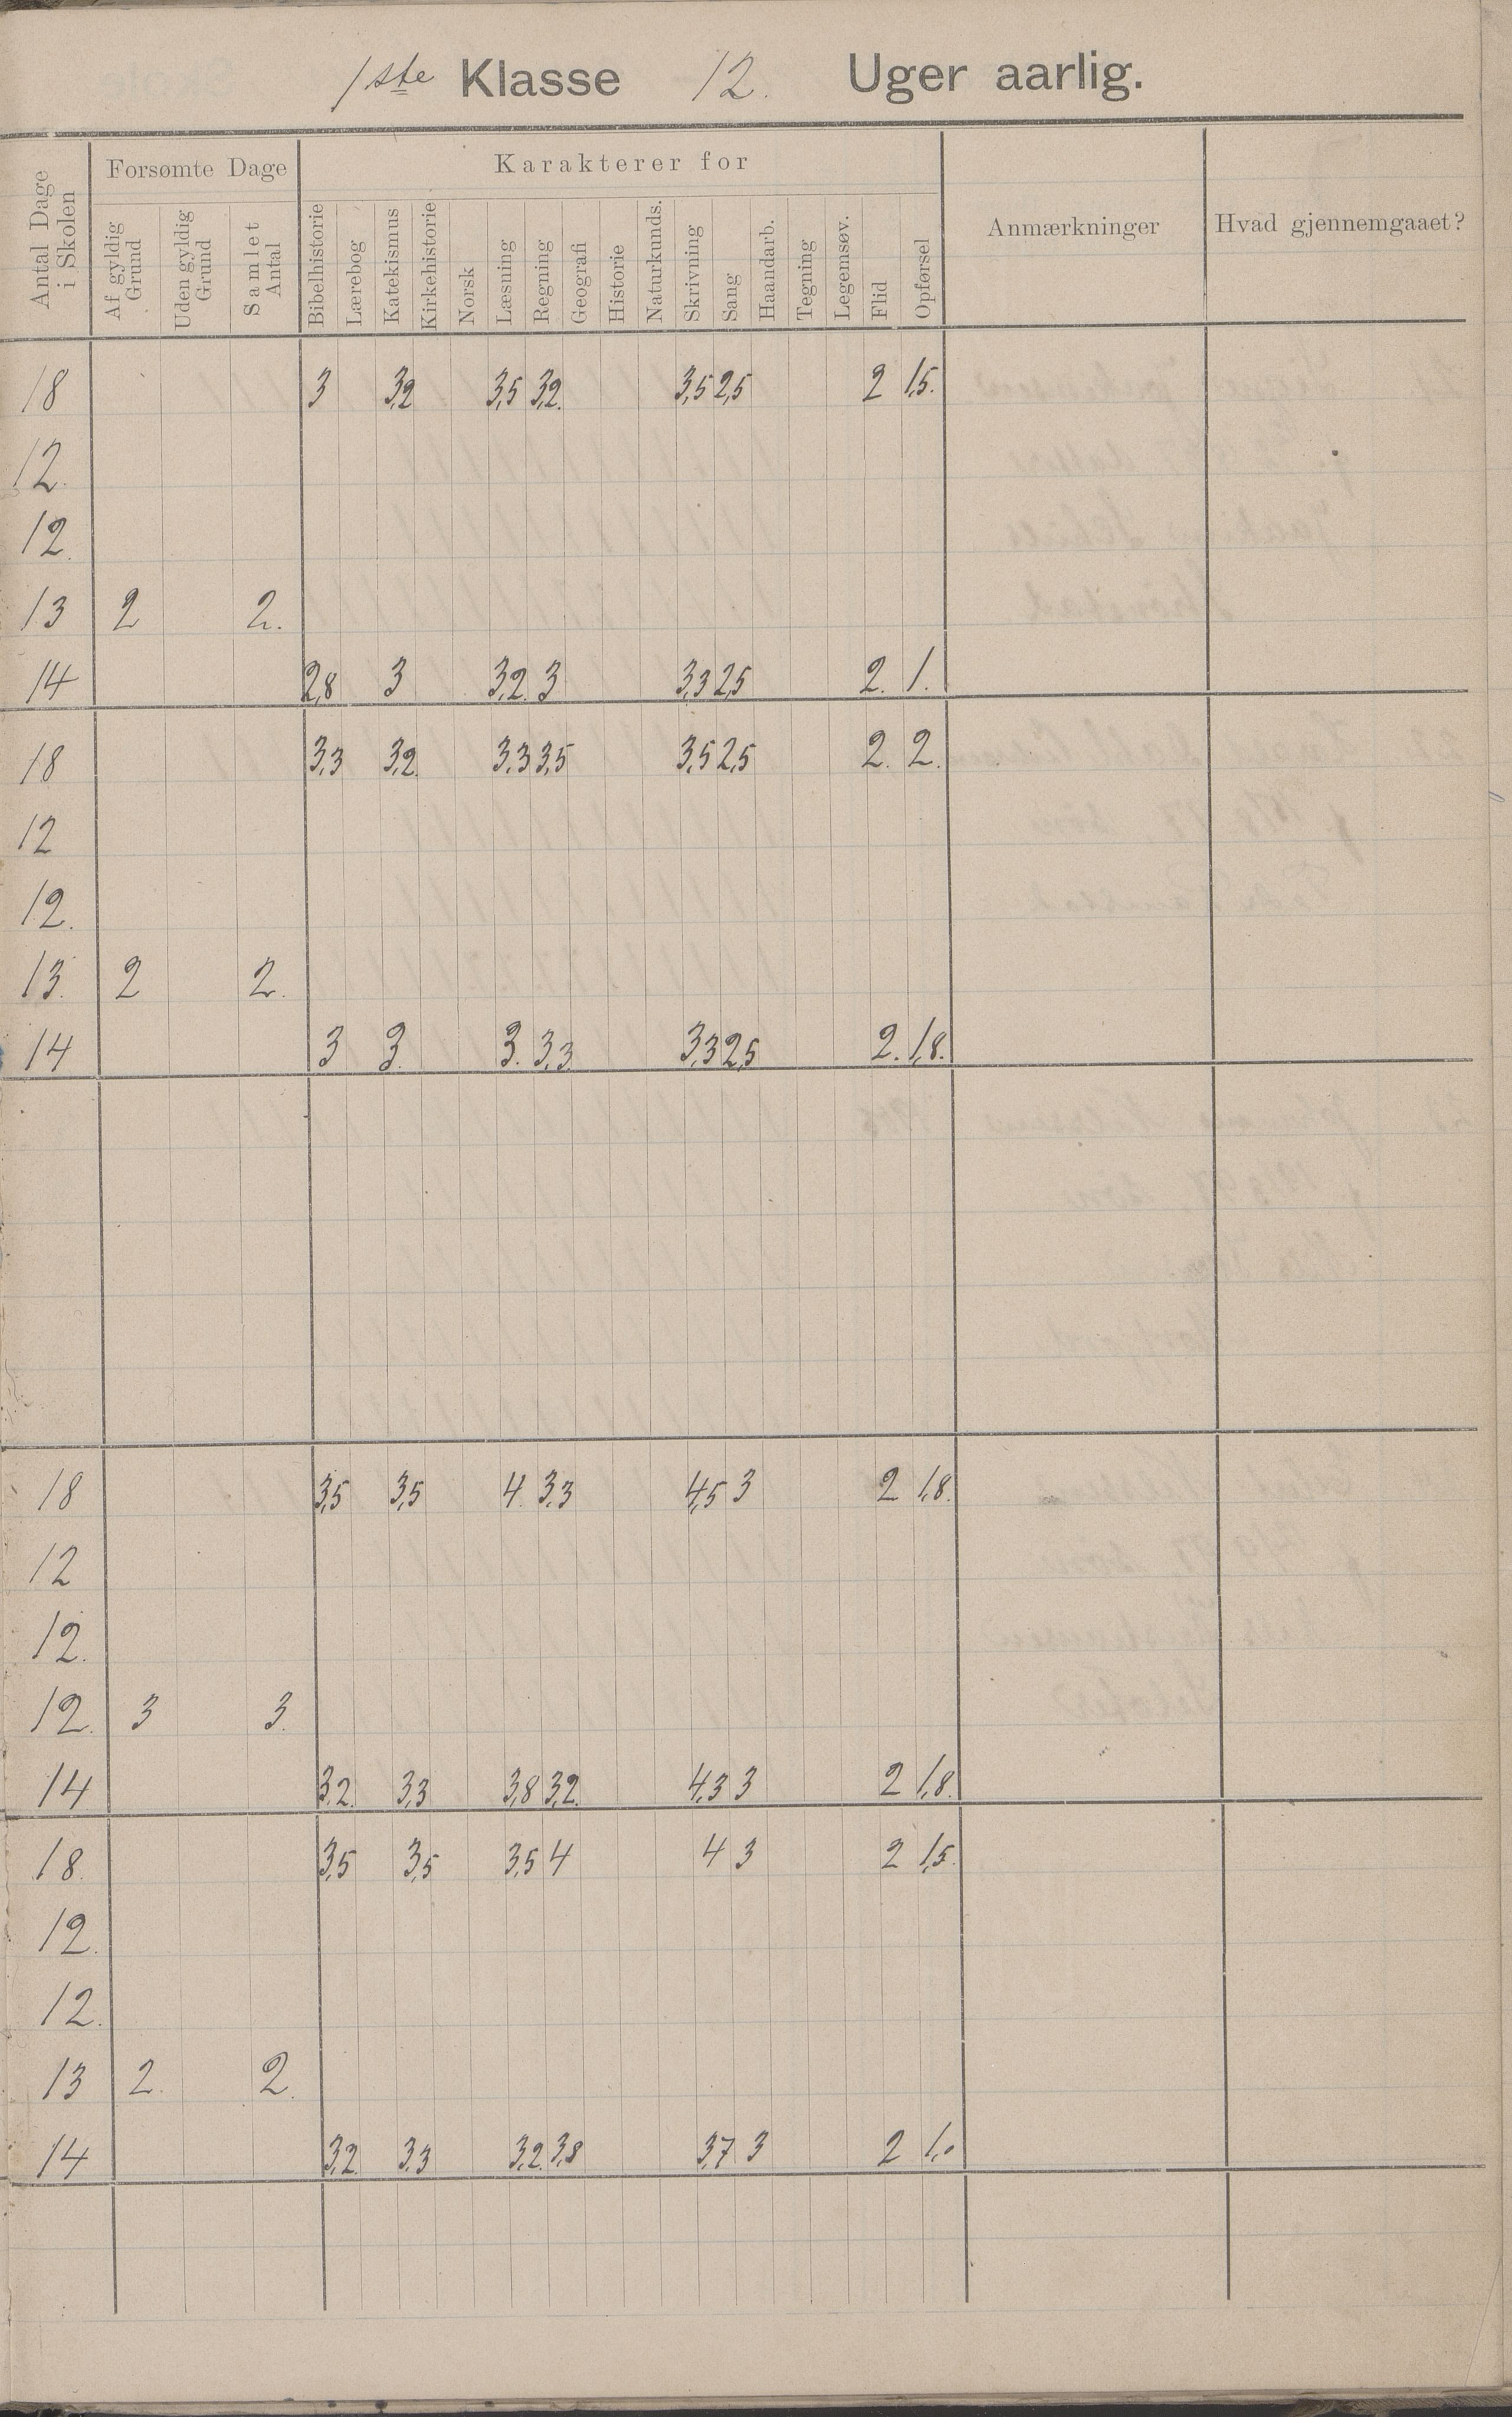 1ste Klasse 12. Uger aarlig.
Antal Dage i Skolen
Forsømte Dage
Af gyldig Grund
Uden gyldig Grund
Samlet Antal
Karakterer for
Bibelhistorie
Lærebog
Katekismus
Kirkehistorie
Norsk
Læsning
Regning
Geografi
Historie
Naturkunds.
Skrivning
Sang
Haandarb.
Tegning
Legemsøv.
Flid
Opførsel
Anmærkninger
Hvad gjennemgaaet?
18 3 3,2 3,5 3,2. 3,5 2,5 2 1,5.
12.
12.
13 2 2.
14 2,8 3 3,2. 3 3,3 2,5 2. 1.
18 3,3 3,2. 3,3 3,5 3,5 2,5 2. 2.
12
12.
13. 2 2.
14 3 3. 3. 3,3 3,3 2,5 2. 1,8.
18 3,5 3,5 4. 3,3 4,5 3 2 1,8.
12
12.
12. 3 3.
14 3,2. 3,3 3,8 3,2. 4,3 3 2 1,8.
18. 3,5 3,5 3,5 4 4 3 2 1,5.
12.
12.
13 2. 2.
14 3,2. 3,3 3,2. 3,8 3,7 3 2 1,0